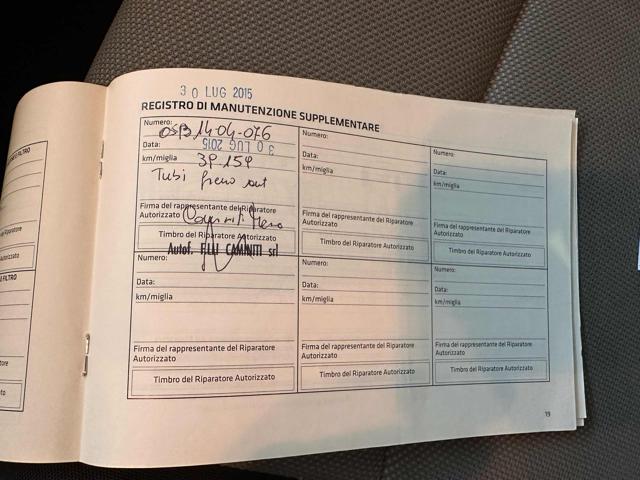 30 LUG 2015
REGISTRO DI MANUTENZIONE SUPPLEMENTARE
Numero: OSB 14-04-076
Data: 30 LUG 2015
km/miglia 39.159
Tubi freno ant
Firma del rappresentante del Riparatore
Autorizzato
Timbro del Riparatore Autorizzato
Autof. F.LLI CAMINITI srl
Numero:
Data:
km/miglia
Firma del rappresentante del Riparatore
Autorizzato
Timbro del Riparatore Autorizzato
Numero:
Data:
km/miglia
Firma del rappresentante del Riparatore
Autorizzato
Timbro del Riparatore Autorizzato
Numero:
Data:
km/miglia
Firma del rappresentante del Riparatore
Autorizzato
Timbro del Riparatore Autorizzato
Numero:
Data:
km/miglia
Firma del rappresentante del Riparatore
Autorizzato
Timbro del Riparatore Autorizzato
Numero:
Data:
km/miglia
Firma del rappresentante del Riparatore
Autorizzato
Timbro del Riparatore Autorizzato
19